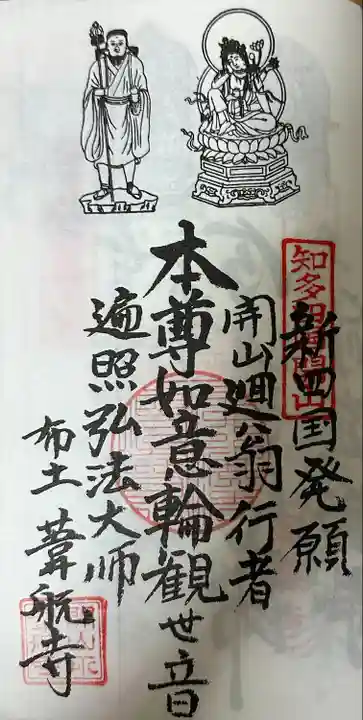 新四国発願
開山廻翁行者
本尊如意輪観世音
遍照弘法大师
布土 葦航寺